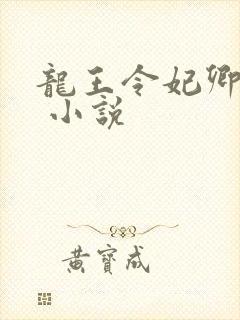 龍王令妃卿
小說
黃寶成